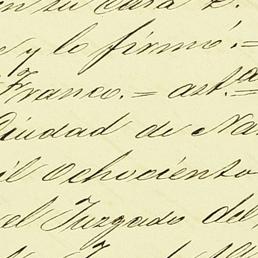 en su casa
e y lo firmó.=
Franco.= ast.
Ciudad de Na
il Ochociento
el Juzgado del